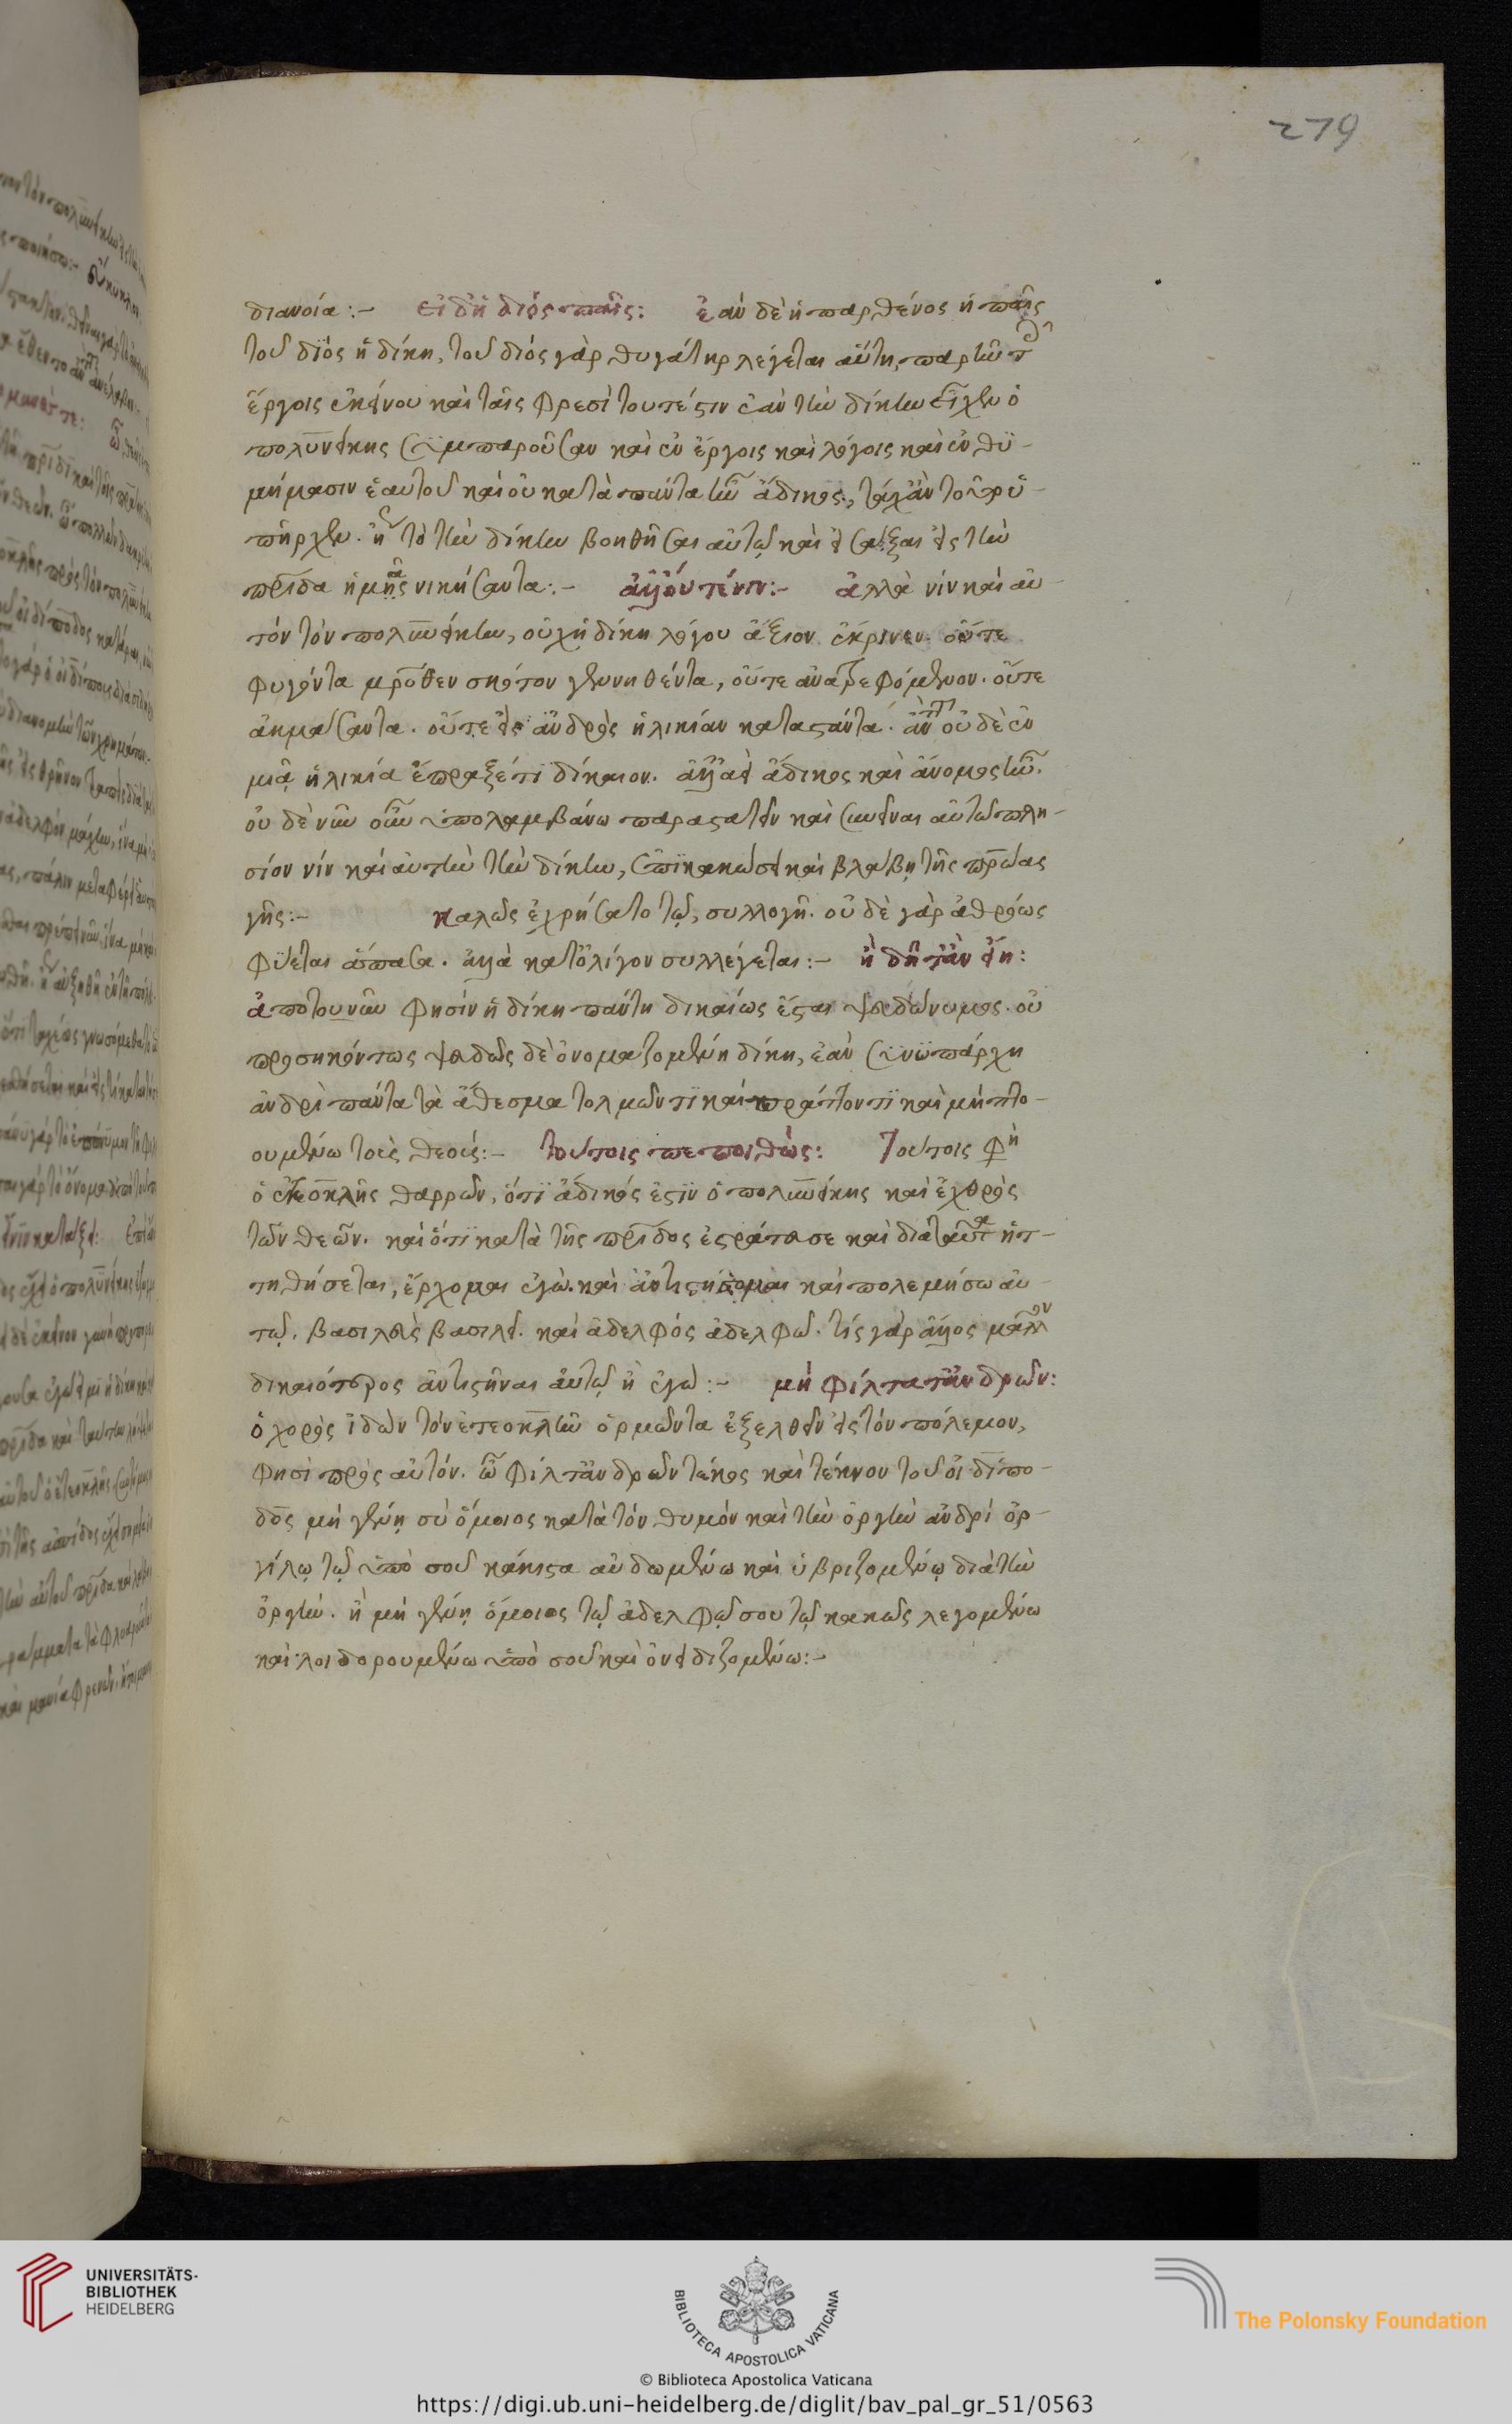 279
διανοία :- εἰ δ' ἡ διός παῖς: ἐὰν δὲ ἡ παρθένος ἡ παῖς
τοῦ διὸς ἡ δίκη, τοῦ διὸς γὰρ θυγάτηρ λέγεται αὕτη, παρῆν τ
ἔργοις ἐκείνου καὶ ταῖς φρεσὶ τουτέστιν ἐὰν τὴν δίκην εἶχεν ὁ
πολυνείκης συμπαροῦσαν καὶ ἐν ἔργοις καὶ λόγοις καὶ ἐνθυ-
μήμασιν ἑαυτοῦ καὶ οὐ κατὰ πάντα ἦν ἄδικος, τάχ' ἂν τοῦτο ὑ-
πῆρχεν. ἤγουν τὸ τὴν δίκην βοηθῆσαι αὐτῷ καὶ εἰσάξαι εἰς τὴν
πρίδα ἡμᾶς νικήσαντα :- ἀλλ' οὔτε νιν :- ἀλλὰ νίν καὶ αὐ-
τόν τὸν πολυνείκην, οὐχ ἡ δίκη λόγου ἄξιον ἔκρινεν. οὔτε
φυγόντα μρόθεν σκότον γεννηθέντα, οὔτε ἀνατρεφόμενον. οὔτε
ἀκμάσαντα. οὔτε εἰς ἀνδρὸς ἡλικίαν καταστάντα. οὐδὲ ἐν
μιᾷ ἡλικία ἔπραξέ τι δίκαιον. ἀλλ' ἀεὶ ἄδικος καὶ ἄνομος ἦν.
οὐδὲ νῦν οὖν ὑπολαμβάνω παραστατεῖν καὶ συνεῖναι αὐτῷ πλη-
σίον νίν καὶ αὐτὴν τὴν δίκην, ἐπὶ κακώσει καὶ βλάβῃ τῆς πρώας
γῆς :- καλῶς ἐχρήσατο τῷ, συλλογῆ. οὐδὲ γὰρ ἀθρόως
φύεται ἅπασα. ἀλλὰ κατ' ὀλίγον συλλέγεται :- ἦ δῆτ' ἂν εἴη:
ἀπὸ τοῦ νῦν φησίν ἡ δίκη πάντη δικαίως ἔσται ψευδώνυμος. οὐ
προσηκόντως ψευδῶς δὲ ὀνομαζομένη δίκη, ἐὰν συνυπάρχη
ἀνδρὶ πάντα τὰ ἄθεσμα τολμῶντι καὶ πράττοντι καὶ μὴ πτο-
ουμένω τοὺς θεούς :- τούτοις πεποιθώς: Τούτοις φὴ
ὁ ἐτεοκλῆς θαρρῶν, ὅτι ἄδικός ἐστιν ὁ πολυνείκης καὶ ἐχθρὸς
τῶν θεῶν. καὶ ὅτι κατὰ τῆς πρίδος ἐστράτευσε καὶ διὰ ταῦτα ἡτ-
τηθήσεται, ἔρχομαι ἐγὼ. καὶ ἀντιστήσομαι καὶ πολεμήσω αὐ-
τῷ. βασιλεὺς βασιλεῖ. καὶ ἀδελφός ἀδελφῷ. τίς γὰρ ἄλλος μᾶλλον
δικαιότερος ἀντιστῆναι αὐτῷ ἢ ἐγώ :- μὴ φίλτατ' ἀνδρῶν:
ὁ χορὸς ἰδὼν τὸν ἐτεοκλῆν ὁρμῶντα ἐξελθεῖν εἰς τὸν πόλεμον,
φησὶ πρὸς αὐτόν. ὦ φίλτ' ἀνδρῶν τέκος καὶ τέκνον τοῦ οἰδίπο-
δος μὴ γένῃ σὺ ὅμοιος κατὰ τὸν θυμόν καὶ τὴν ὀργὴν ἀνδρί ὀρ-
γίλῳ τῷ ὑπὸ σοῦ κάκιστα αὐδωμένω καὶ ὑβριζομένῳ διὰ τὴν
ὀργὴν. ἢ μὴ γένῃ ὅμοιος τῷ ἀδελφῷ σου τῷ κακῶς λεγομένω
καὶ λοιδορουμένω ὑπὸ σοῦ καὶ ὀνειδιζομένω :-
UNIVERSITÄTS-
BIBLIOTHEK
HEIDELBERG
BIBLIOTECA APOSTOLICA VATICANA
The Polonsky Foundation
© Biblioteca Apostolica Vaticana
https://digi.ub.uni-heidelberg.de/diglit/bav_pal_gr_51/0563